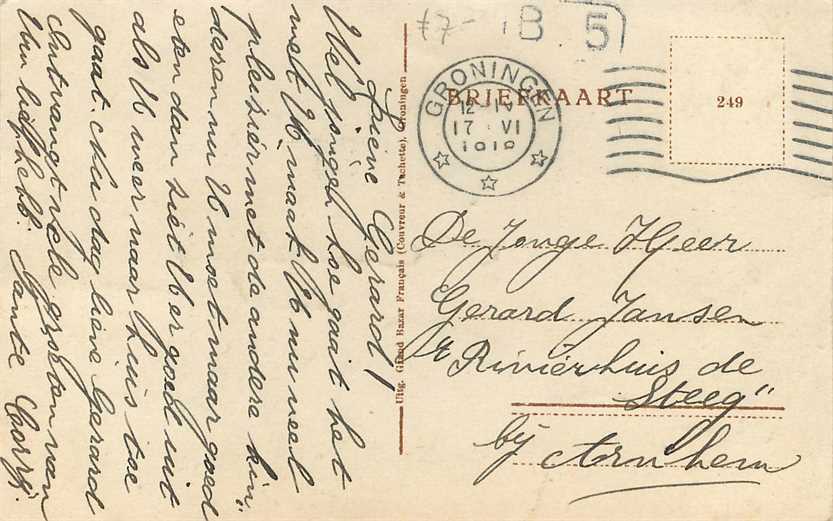 Lieve Gerard!
Wel jongen hoe gaat het
met U, maakt U nu veel
pleizier met de andere kin
deren nu U moet maar goed
eten dan ziet U er goed uit
als U weer naar huis toe
gaat. Nu dag lieve Gerard
Ontvangt vele groeten van
Uw liefhebb. Tante Corry.
Uitg. Grand Bazar Français (Couvreur & Tachette), Groningen
B 5
GRONINGEN
17 VI
BRIEFKAART
249
De Jonge Heer
Gerard Jansen
Rivierhuis de
Steeg"
bij Arnhem